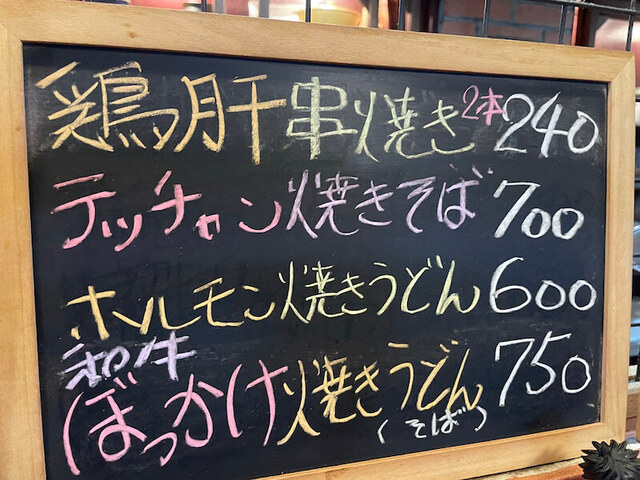 鶏肝串焼き2本240
テッチャン焼きそば700
ホルモン焼きうどん600
和牛
ぼっかけ焼きうどん750
(そば)